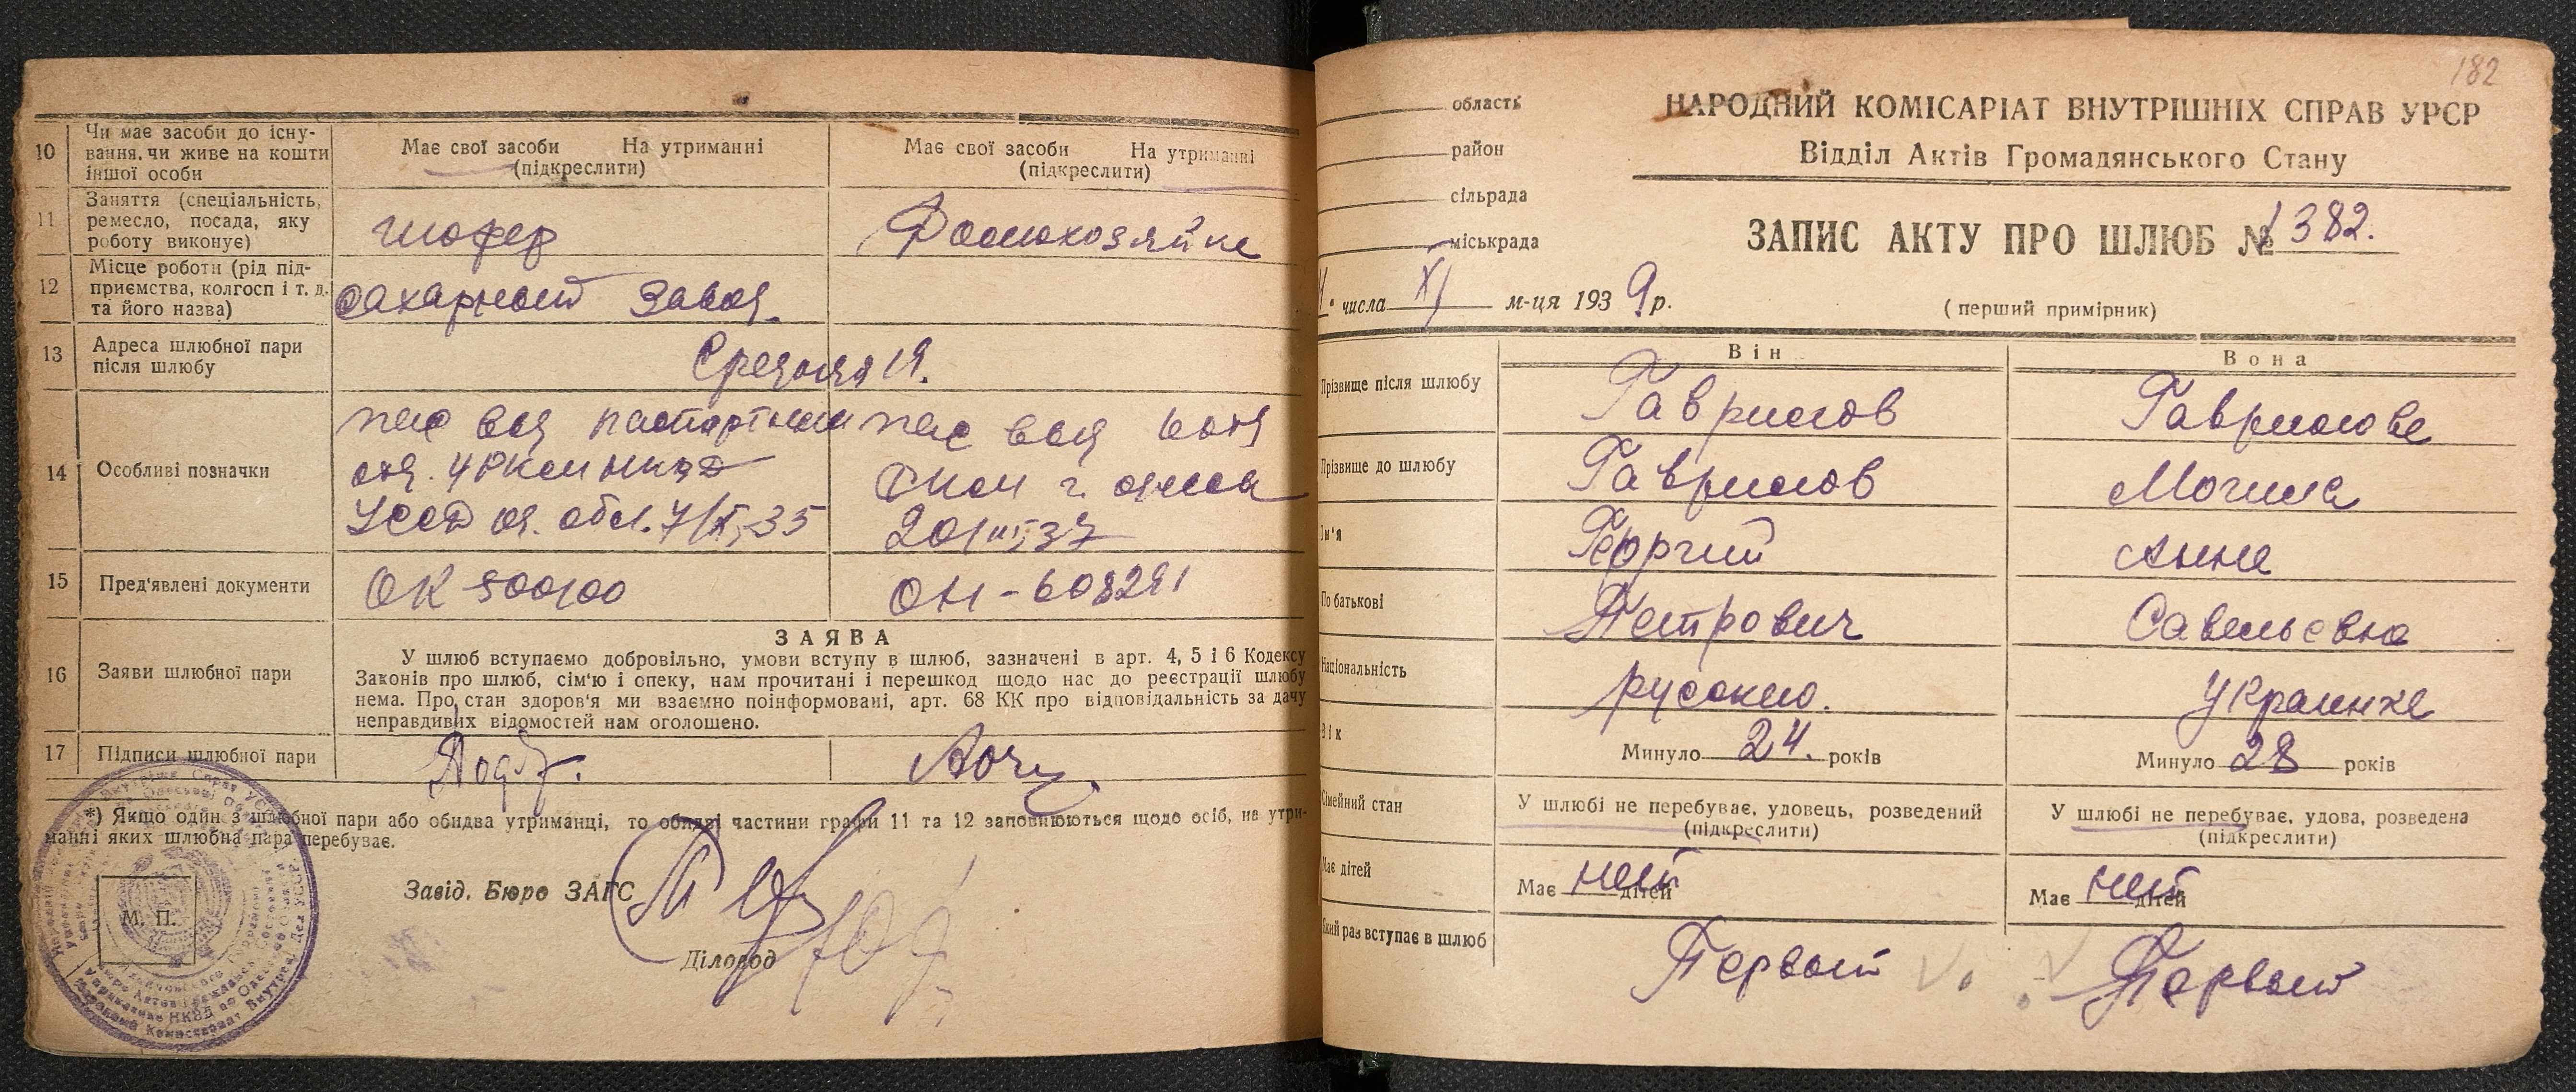 10
Чи має засоби до існу-
вання, чи живе на кошти
іншої особи
Має свої засоби На утриманні
(підкреслити)
Має свої засоби На утриманні
(підкреслити)
11
Заняття (спеціальність,
ремесло, посада, яку
роботу виконує)
шофер
Домохозяйка
12
Місце роботи (рід під-
приємства, колгосп і т. д.
та його назва)
сахарный завод.
13
Адреса шлюбної пари
після шлюбу
Средняя 19.
14
Особливі позначки
пас выд паспортным
отд. УРКМ НКВД
УССР од. обл. 7/
35
пас выд
РКМ г. одесса
20/III 37
15
Пред'явлені документи
ОК 500100
ОН-608291
16
Заяви шлюбної пари
ЗАЯВА
У шлюб вступаємо добровільно, умови вступу в шлюб, зазначені в арт. 4, 5 і 6 Кодексу
Законів про шлюб, сім'ю і опеку, нам прочитані і перешкод щодо нас до реєстрації шлюбу
нема. Про стан здоров'я ми взаємно поінформовані, арт. 68 КК про відповідальність за дачу
неправдивих відомостей нам оголошено.
17
Підписи шлюбної пари
*) Якщо один з шлюбної пари або обидва утриманці, то обидві частини графи 11 та 12 заповнюються щодо осіб, на утри-
манні яких шлюбна пара перебуває.
М. П.
Завід. Бюро ЗАГС
Діловод
182
область
район
сільрада
міськрада
НАРОДНИЙ КОМІСАРІАТ ВНУТРІШНІХ СПРАВ УРСР
Відділ Актів Громадянського Стану
ЗАПИС АКТУ ПРО ШЛЮБ № 1382.
числа XI м-ця 1939 р.
(перший примірник)
Він
Вона
Прізвище після шлюбу
Гаврилов
Гаврилова
Прізвище до шлюбу
Гаврилов
Могила
Ім'я
Георгий
Анна
По батькові
Петрович
Савельевна
Національність
русский.
Украинка
Вік
Минуло 24. років
Минуло 28 років
Сімейний стан
У шлюбі не перебуває, удовець, розведений
(підкреслити)
У шлюбі не перебуває, удова, розведена
(підкреслити)
Має дітей
Має нет дітей
Має нет дітей
Який раз вступає в шлюб
Первый
Первый